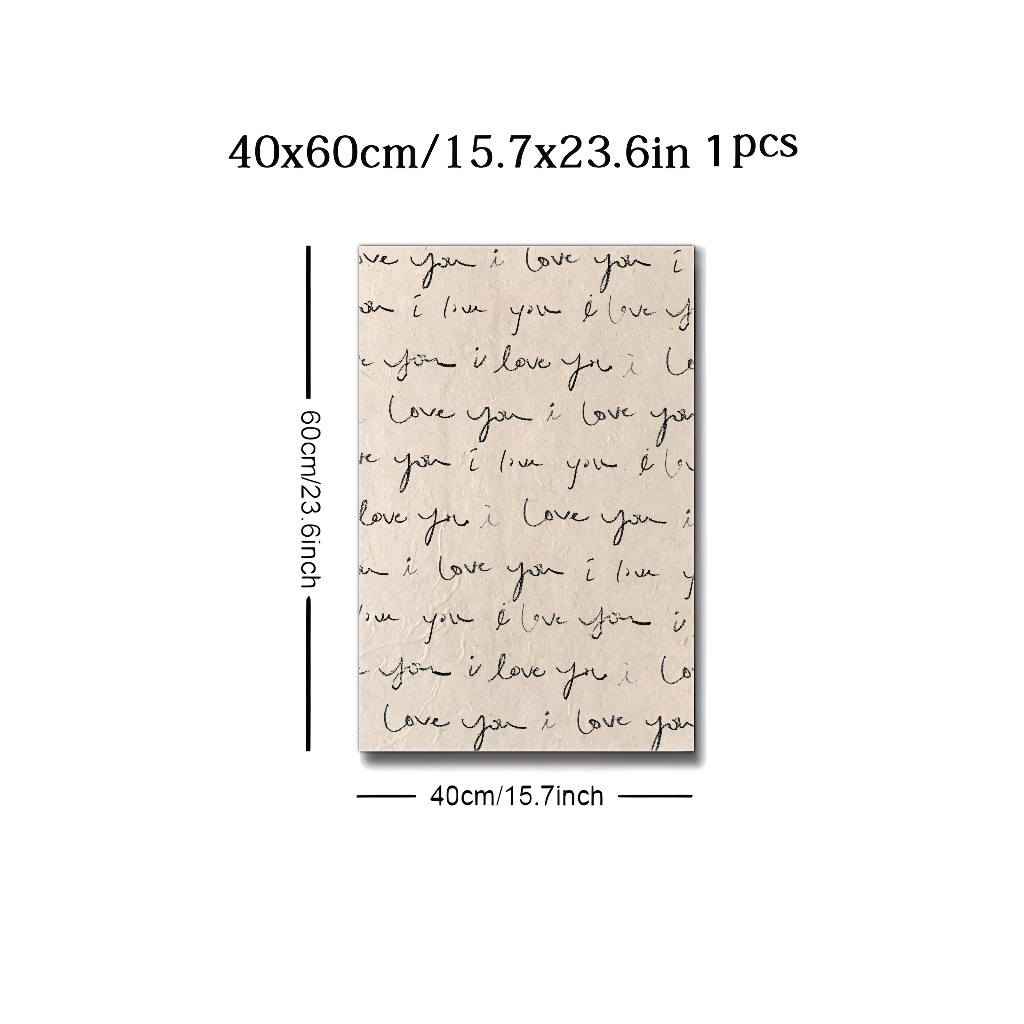 40x60cm/15.7x23.6in 1pcs
ove you i love you i
ou i love you i love y
e you i love you i lo
love you i love you
ve you i love you i lov
love you i love you i
u i love you i love y
love you i love you i
you i love you i lo
love you i love you
60cm/23.6inch
40cm/15.7inch